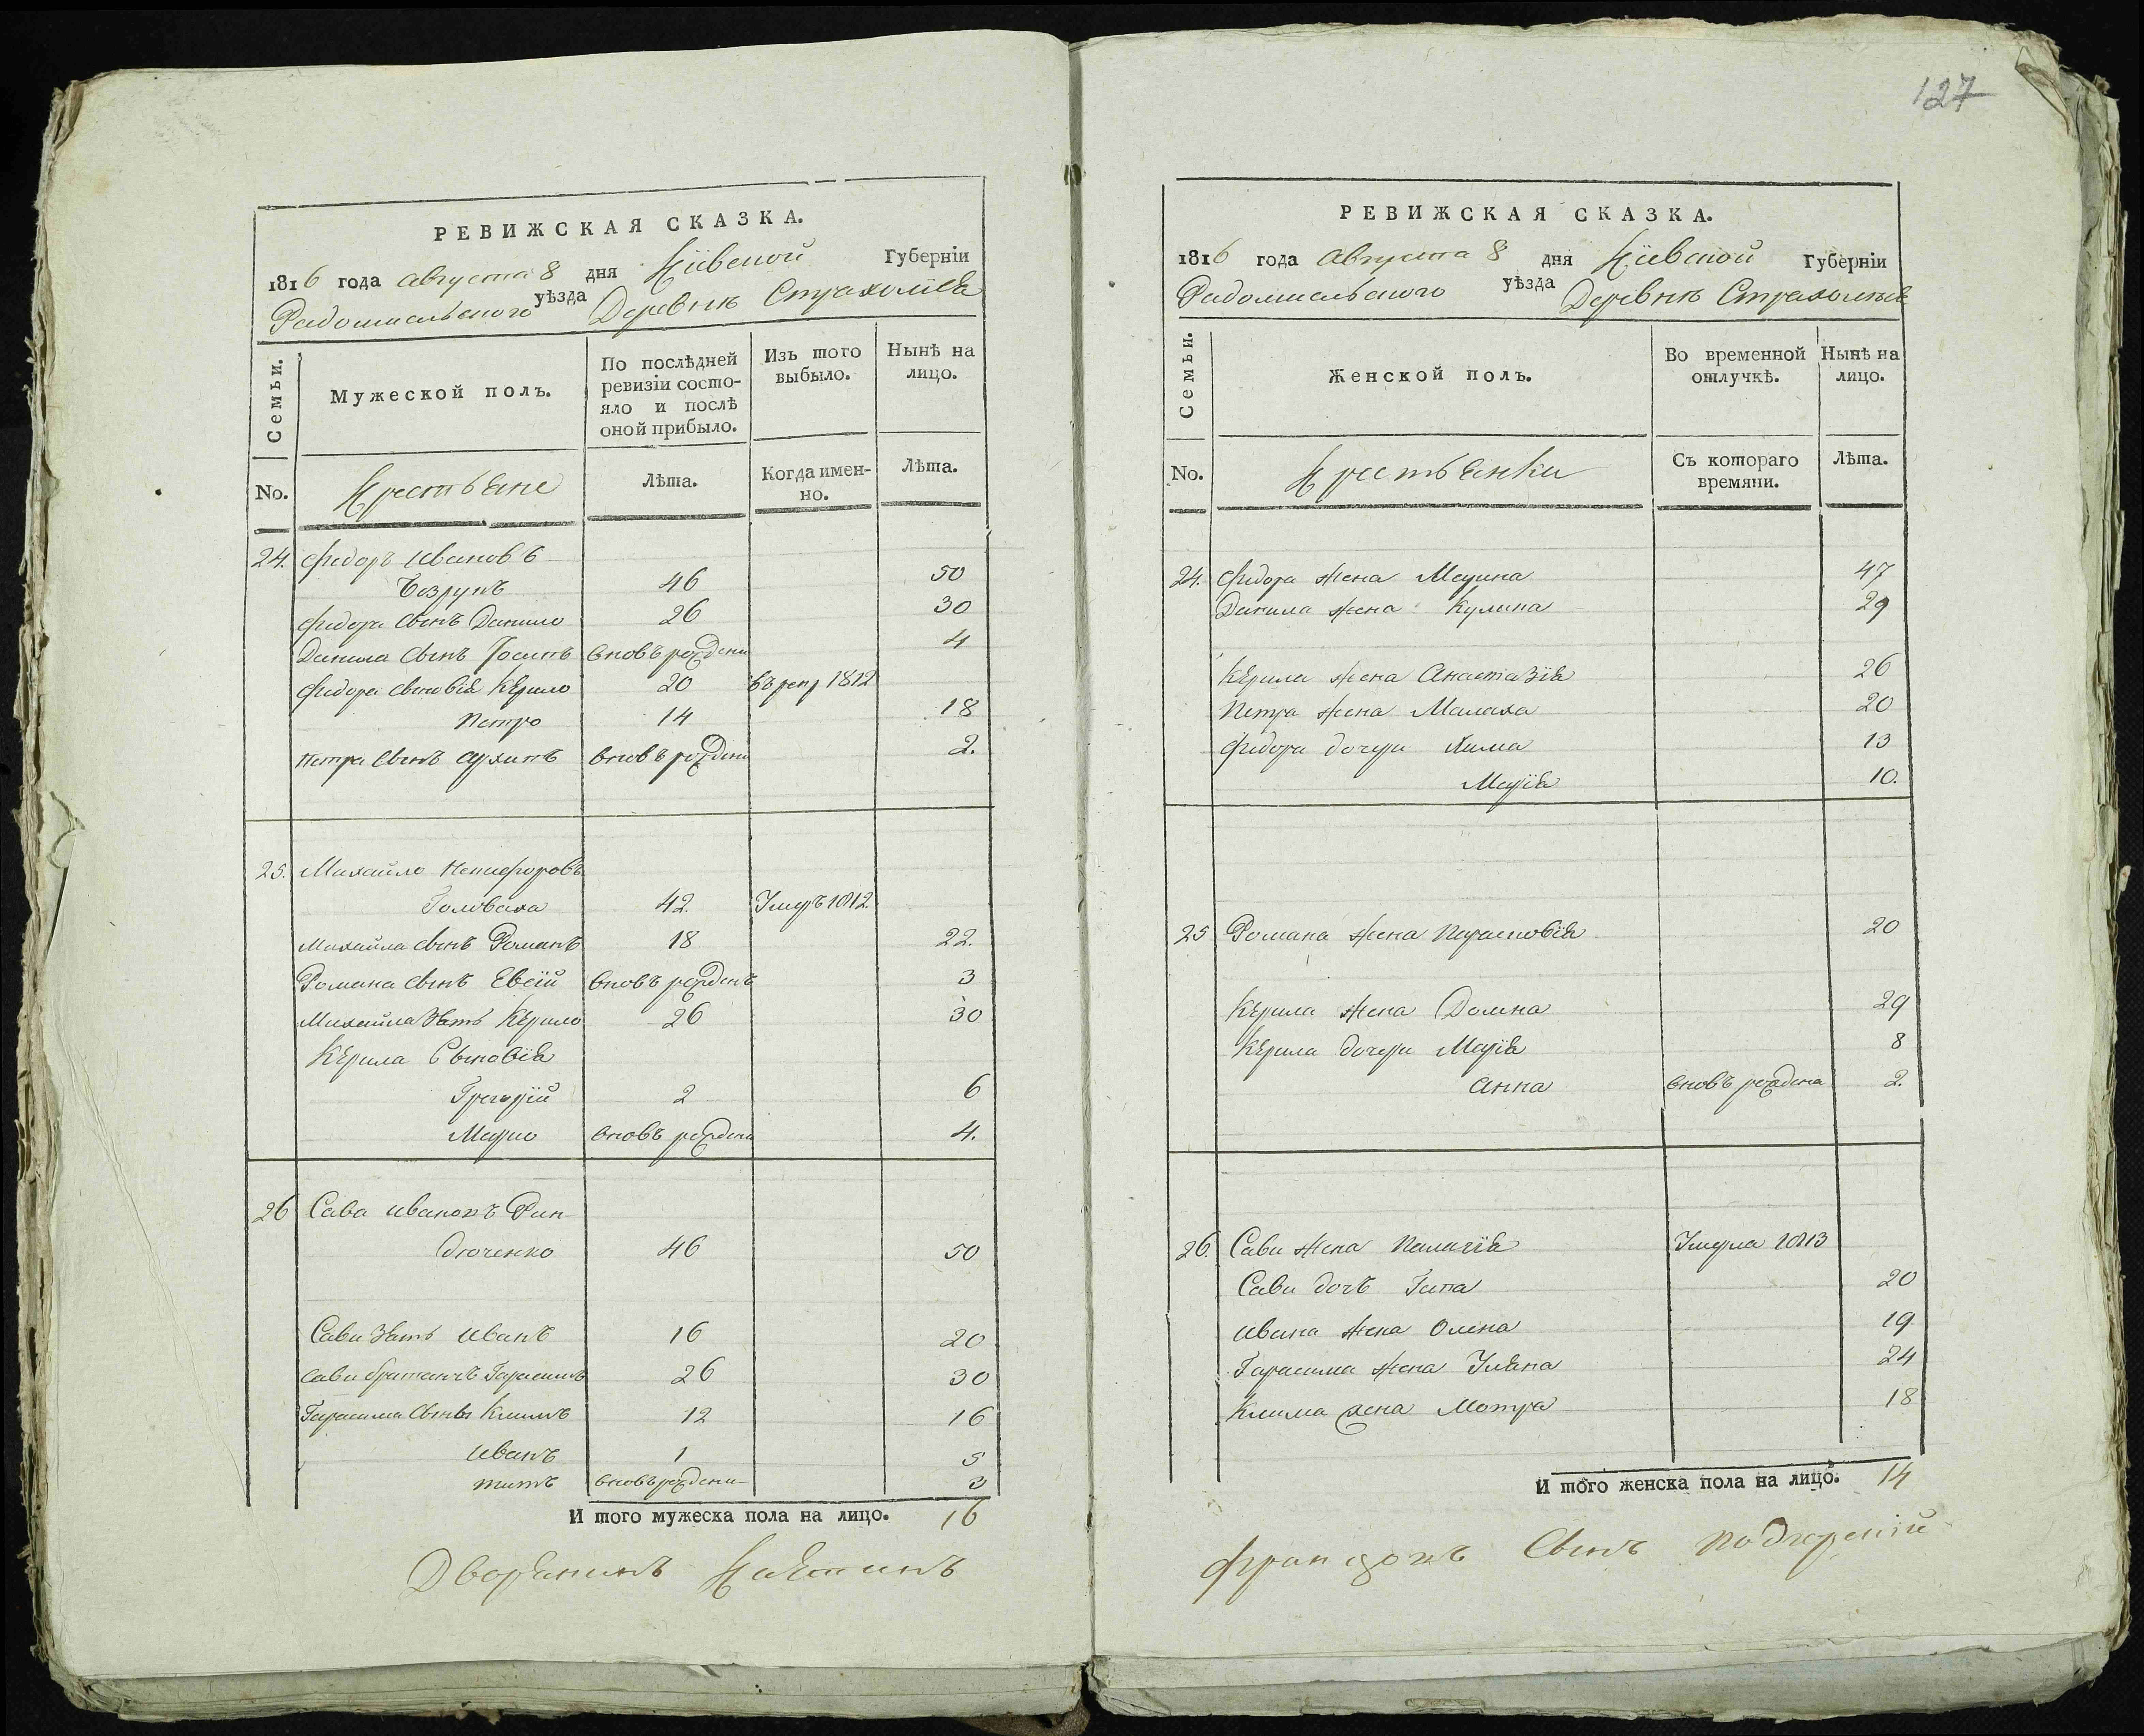 127
РЕВИЖСКАЯ СКАЗКА.
1816 года августа 8 дня Кіевской Губерніи
Радомысльского уѣзда Деревнѣ Страхолися
Семьи. Мужеской полъ. По послѣдней ревизіи состояло и послѣ оной прибыло. Изъ того выбыло. Нынѣ на лицо.
No. Крестьяне Лѣта. Когда именно. Лѣта.
24. Федоръ Ивановъ
46 50
Федора сынъ Данило 26 30
Данила сынъ Іосипъ вновь рожденъ 4
Федора сыновія Кѣрило 20 въ рекр 1812
Петро 14 18
Петра сынъ Архипъ вновь рожденъ 2.
25. Михайло Никифоровъ
Головаха 42. Умеръ 1812.
Михайла сынъ Романъ 18 22.
Романа сынъ Евсій вновь рожденъ 3
Михайла зять Кѣрило 26 30
Кѣрила Сыновія
Григорій 2 6
Марко вновь рожденъ 4.
26 Сава Ивановъ Рин
дюченко 46 50
Сави зять Иванъ 16 20
Сави братанчъ Гарасимъ 26 30
Гарасима сынъ Климъ 12 16
Иванъ 1 5
Титъ вновь рожденъ 3
И того мужеска пола на лицо. 16
Дворянинъ
РЕВИЖСКАЯ СКАЗКА.
1816 года Августа 8 дня Кіевской Губерніи
Радомысльского уѣзда Деревнѣ Страхолися
Семьи. Женской полъ. Во временной отлучкѣ. Нынѣ на лицо.
No. Крестьянки Съ котораго времяни. Лѣта.
24. Федора жена Марина 47
Данила жена Кулина 29
Кѣрила жена Анастазія 26
Петра жена Малаха 20
Федора дочери Хима 13
Марія 10.
25 Романа жена Парасковія 20
Кѣрила жена Домна 29
Кѣрила дочери Марія 8
Анна вновь рождена 2.
26. Сави жена Палагія Умерла 1813
Сави дочь Гапа 20
Ивана жена Олена 19
Гарасима жена Уляна 24
Клима жена Мотра 18
И того женска пола на лицо. 14
сынъ